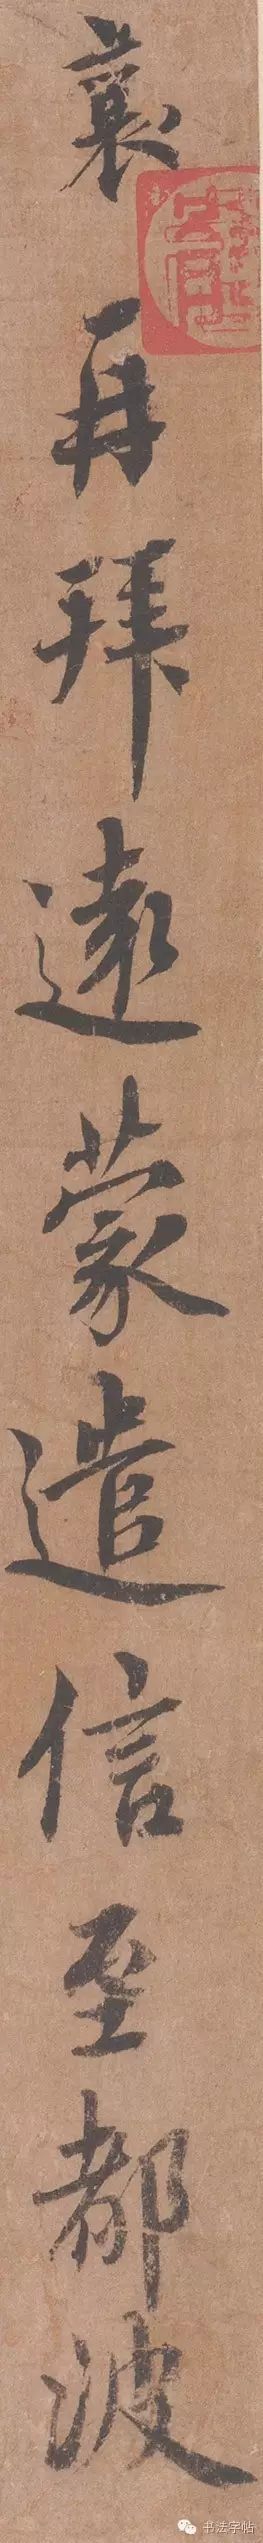 襄再拜遠蒙遣信至都波
书法字帖